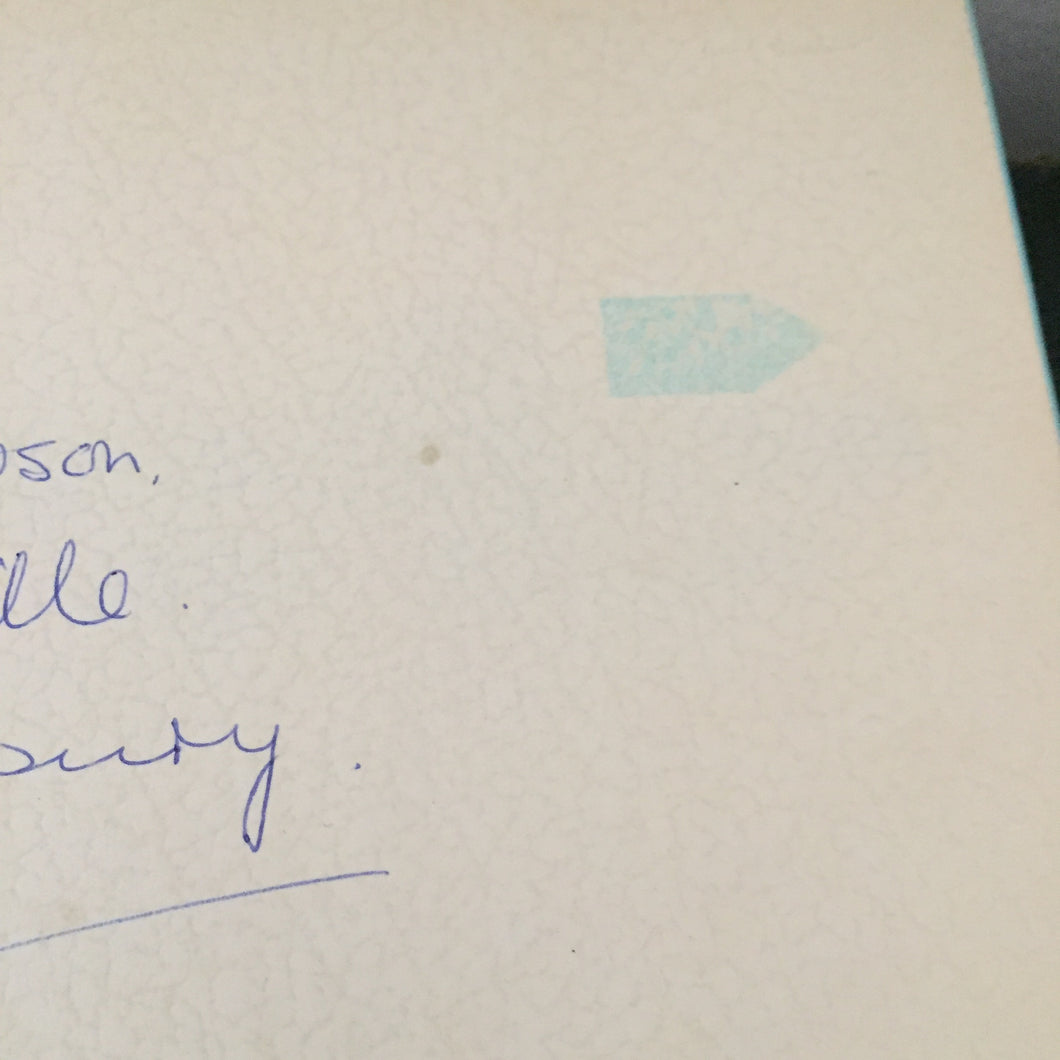 son,
ille.
bury.